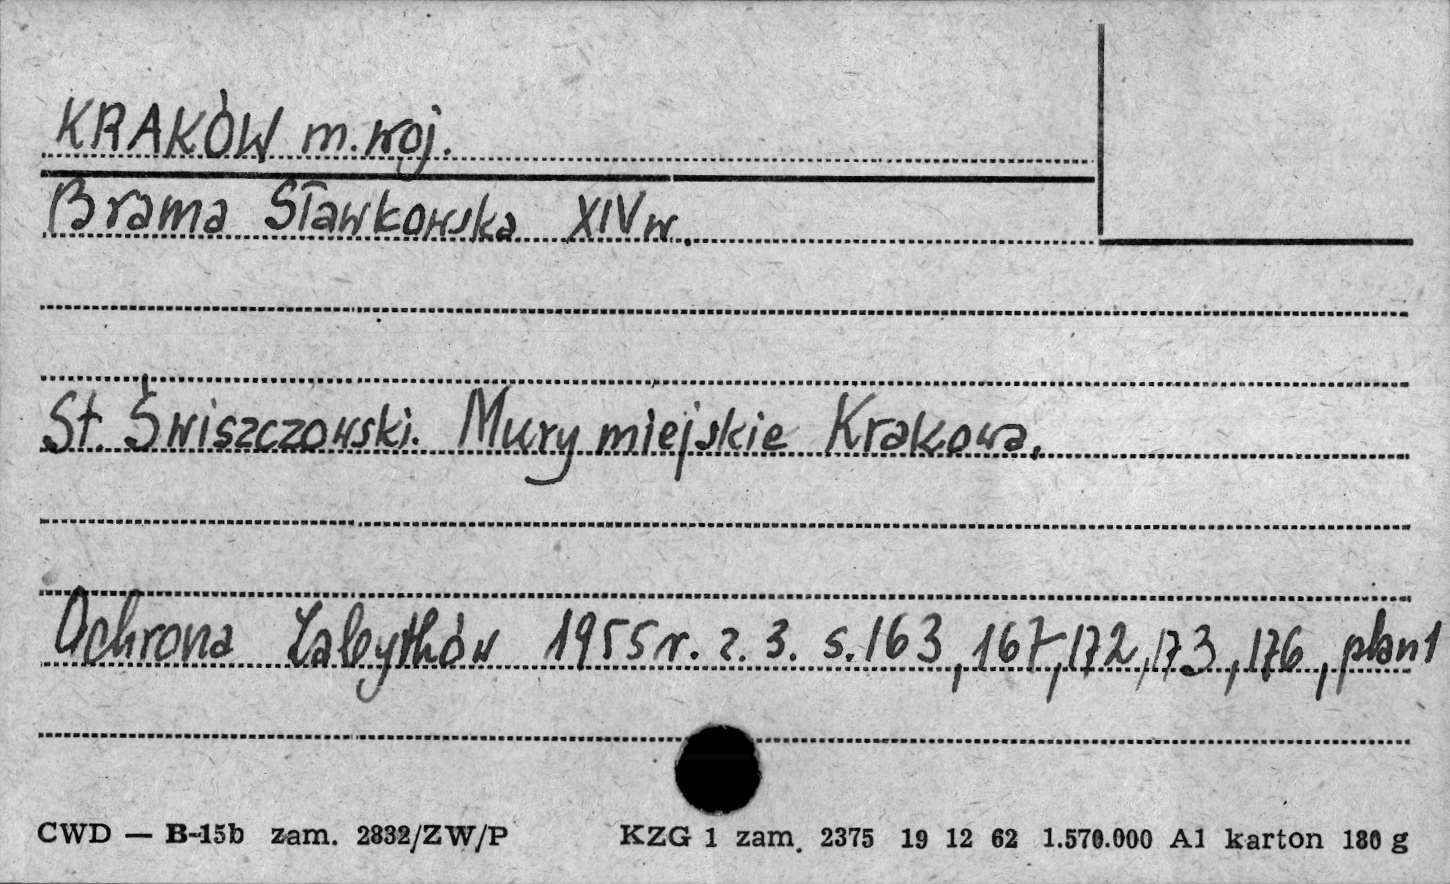 KRAKÓW m. woj.
Brama Sławkowska XIV w.
St. Świszczowski. Mury miejskie Krakowa.
Ochrona Zabytków 1955 r. z. 3. s. 163, 167, 172, 173, 176, plan 1
CWD — B-15b zam. 2832/ZW/P KZG 1 zam. 2375 19 12 62 1.570.000 A1 karton 180 g